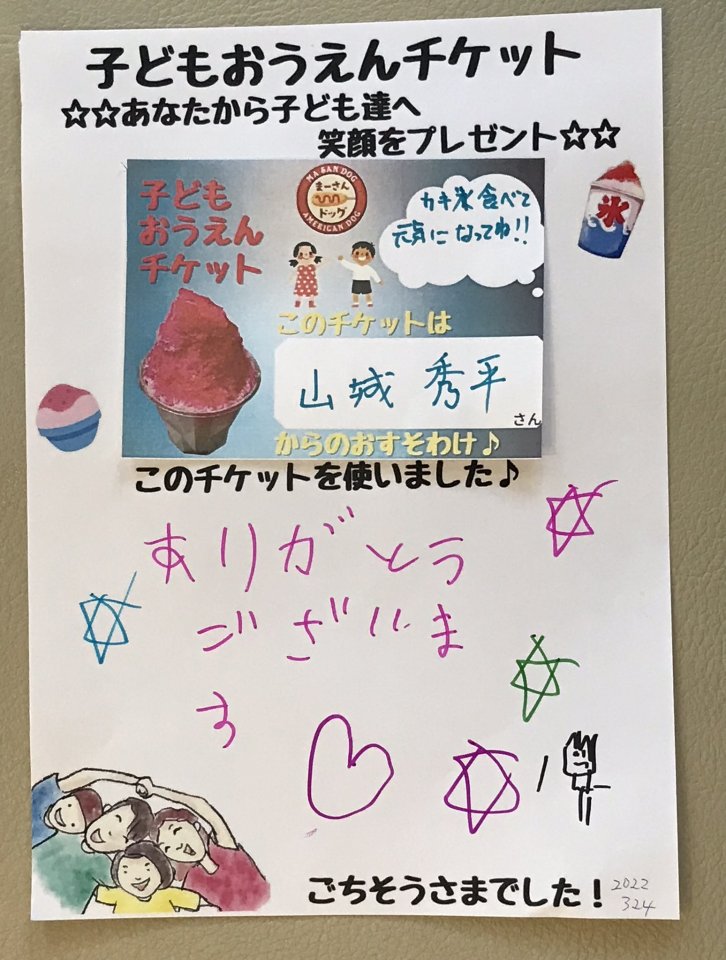 子どもおうえんチケット
☆☆あなたから子ども達へ
笑顔をプレゼント☆☆
子ども
おうえん
チケット
MA SAN DOG
まーさん
ドッグ
AMERICAN DOG
カキ氷食べて
元気になってね!!
氷
このチケットは
山城 秀平
さん
からのおすそわけ♪
このチケットを使いました♪
ありがとう
ございま
す
ごちそうさまでした！
2022
324